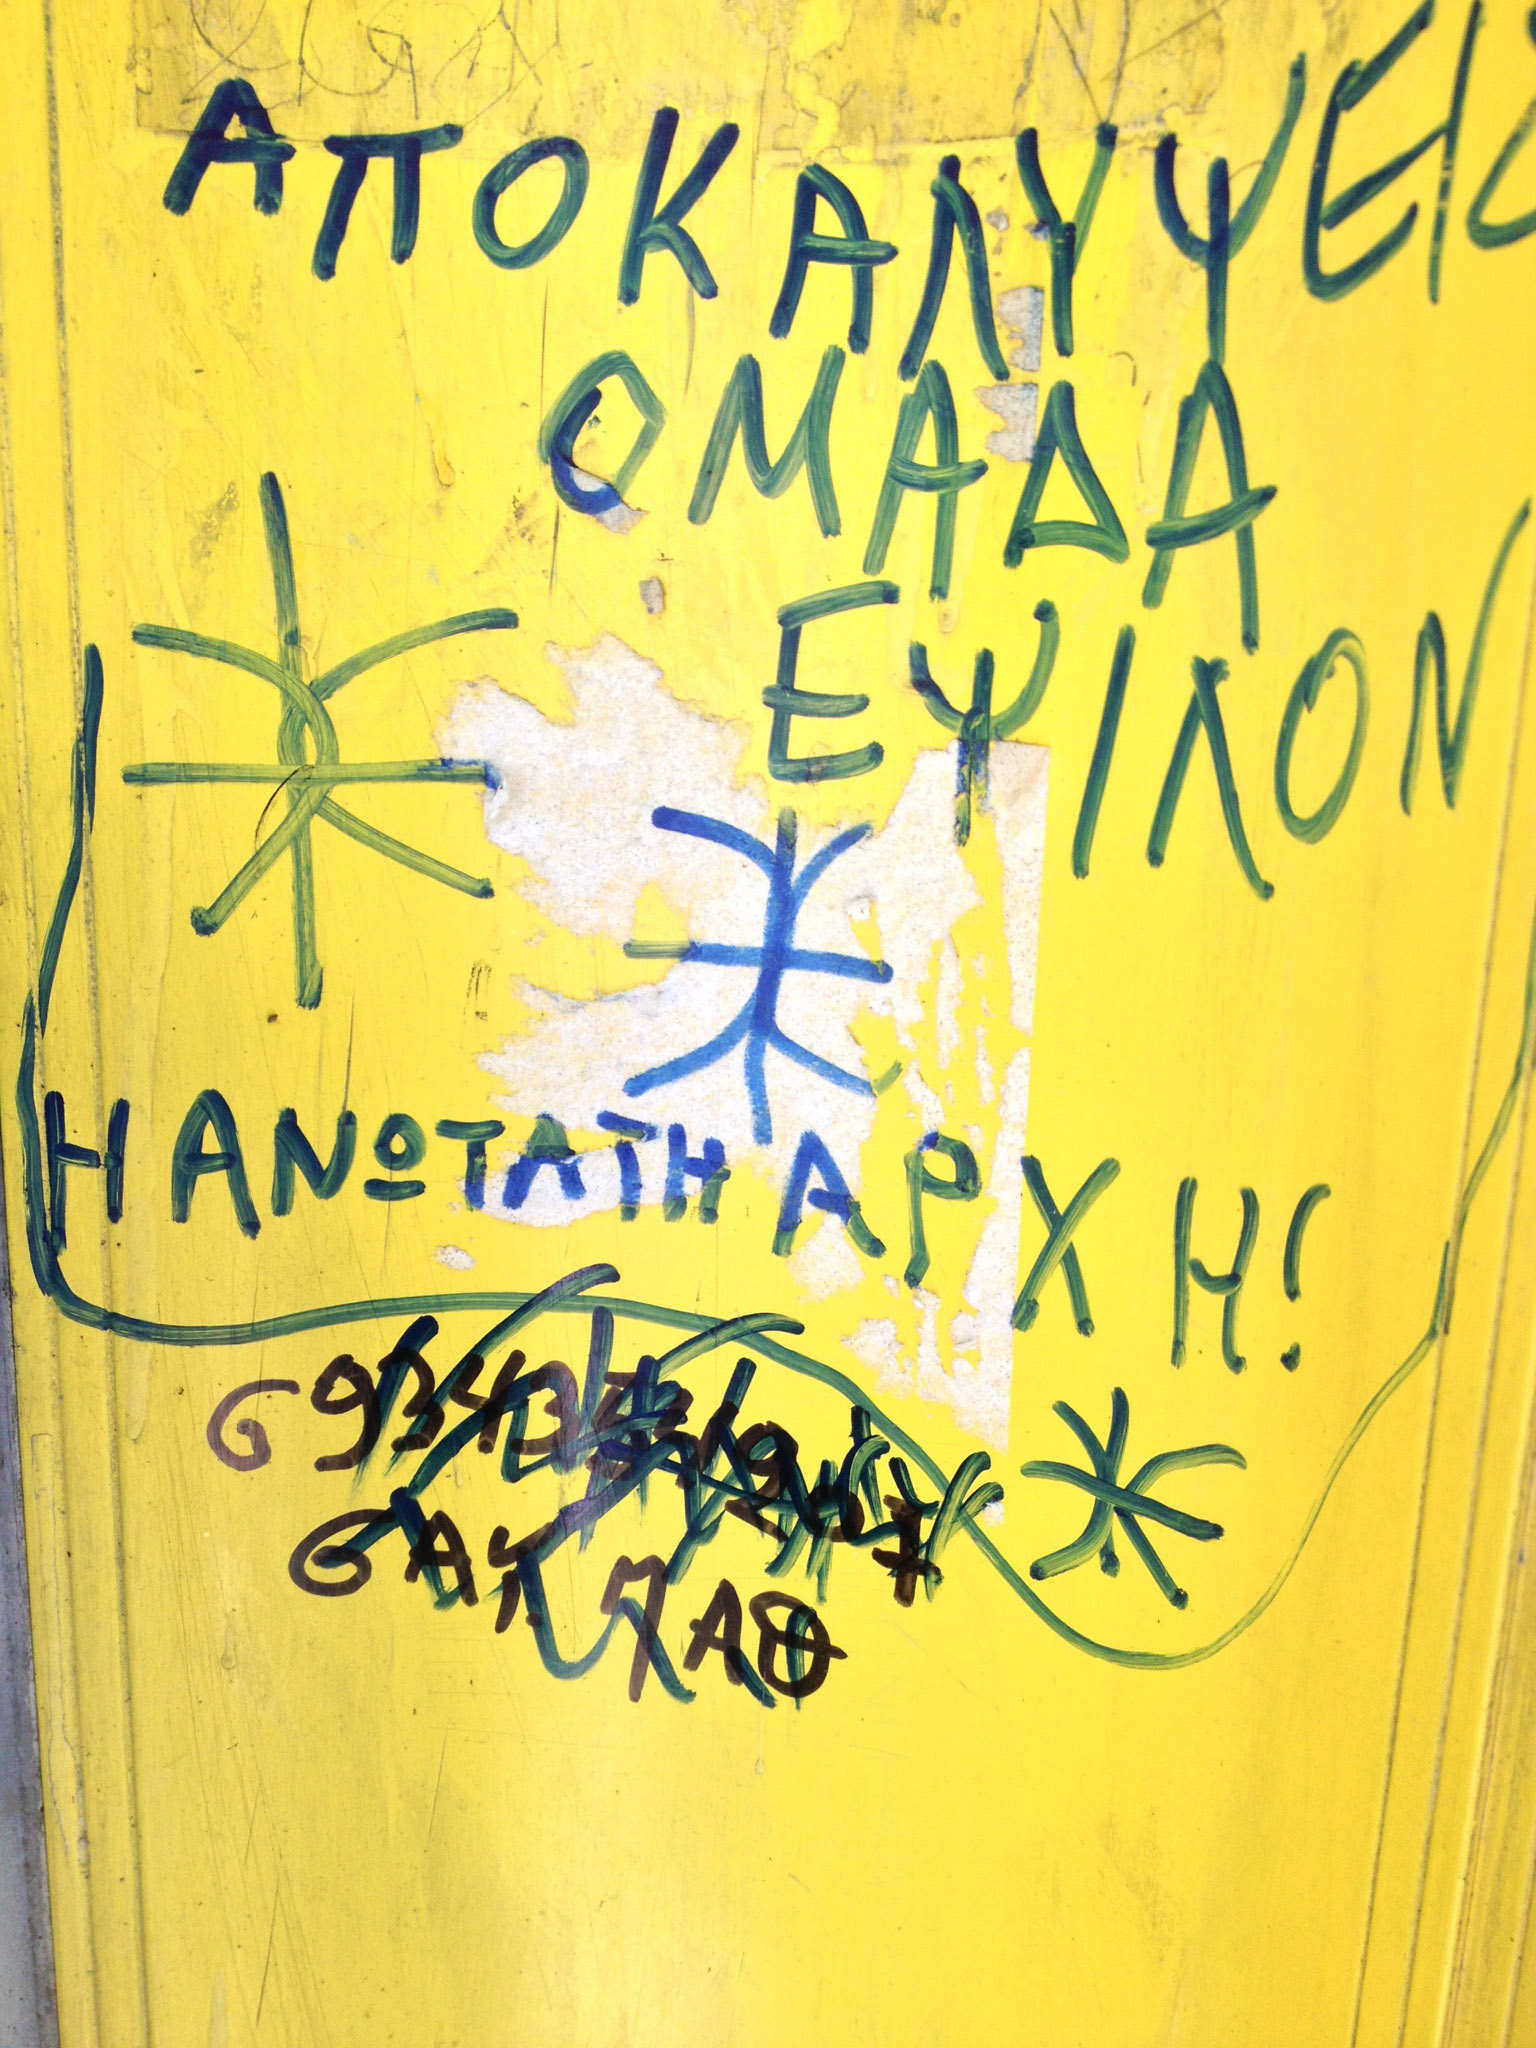 ΑΠΟΚΑΛΥΨΕΙΣ
ΟΜΑΔΑ
ΕΨΙΛΟΝ
Η ΑΝΩΤΑΤΗ ΑΡΧΗ!